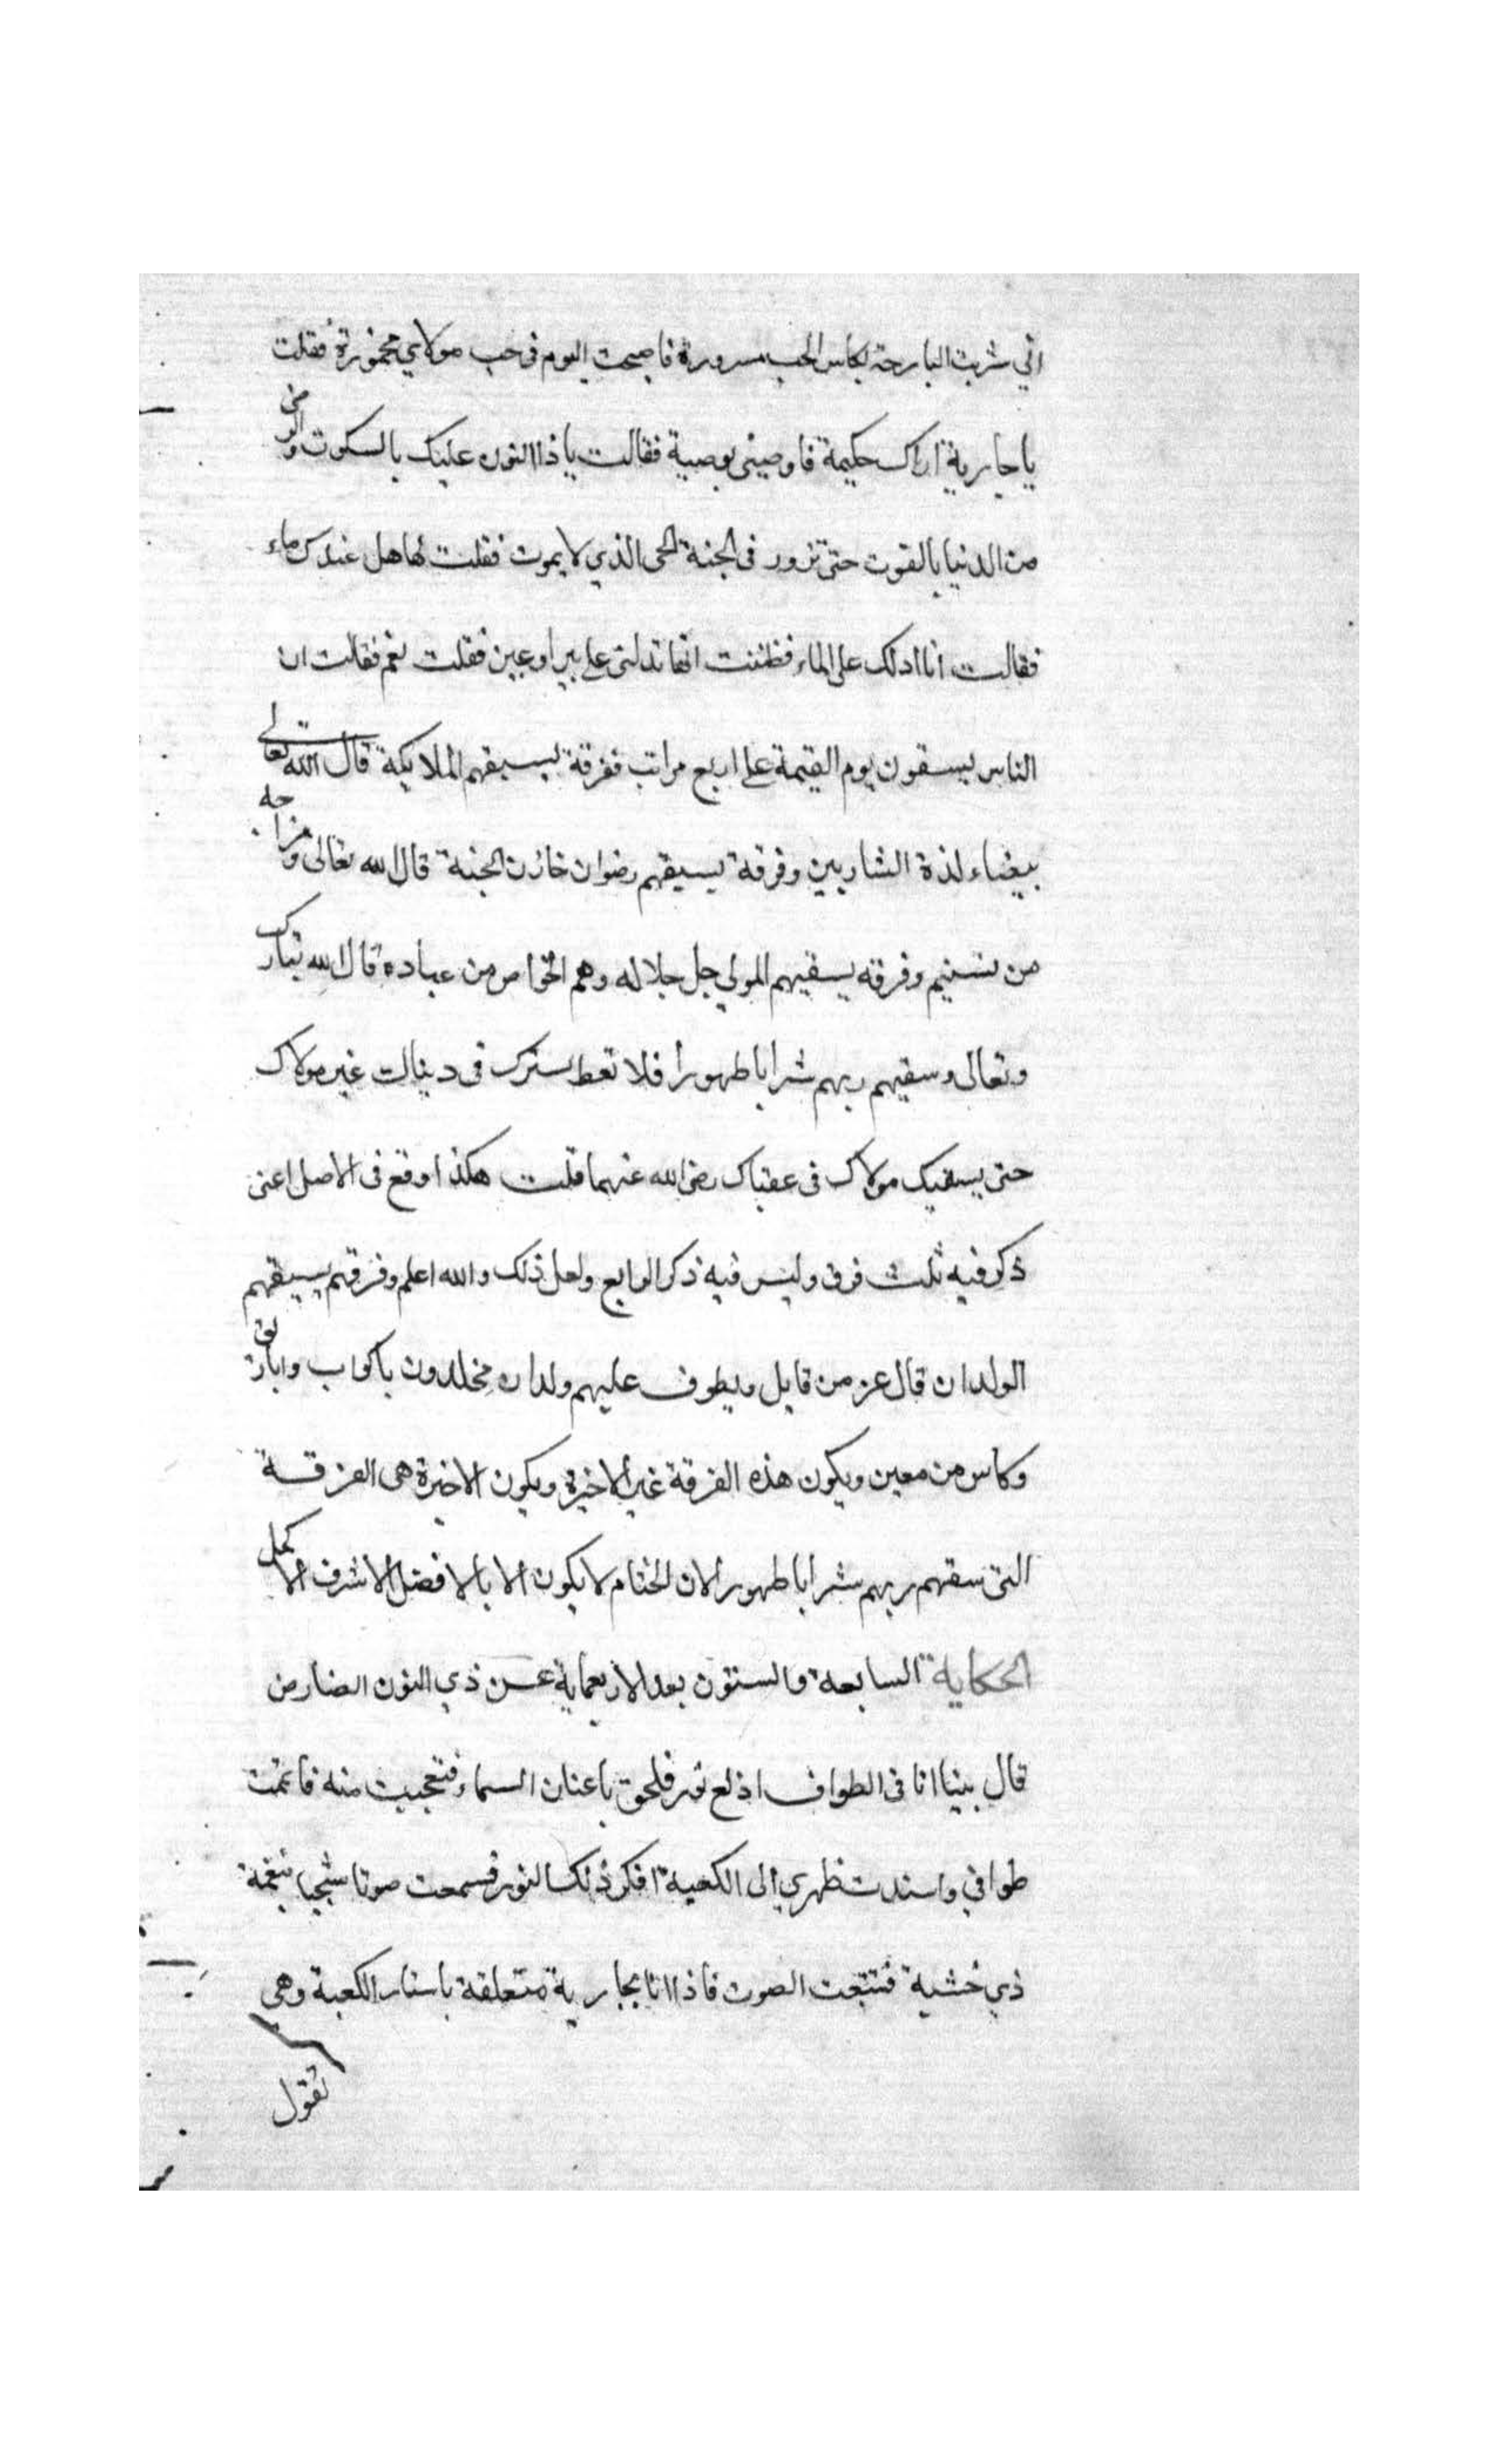 اني شربت البارحة بكاس الحب مسرورة فاصبحت اليوم في حب مولاي مخمورة فقلت
يا جارية اراك حكيمة فاوصيني بوصية فقالت يا ذا النون عليك بالسكوت والرضى
من الدنيا بالقوت حتى تزور في الجنة الحي الذي لا يموت فقلت لها هل عندك ماء
فقالت انا ادلك على الماء فظننت انها تدلني على بير او عين فقلت نعم فقالت ان
الناس يسقون يوم القيمة على اربع مراتب ففرقة يسيقهم الملايكة قال الله تعالى
بيضاء لذة الشاربين وفرقة يسيقهم رضوان خازن الجنة قال الله تعالى ومزاجه
من تسنيم وفرقه يسقيهم المولي جل جلاله وهم الخواص من عباده قال الله تبارك
وتعالى وسقيهم ربهم شرابا طهورا فلا تعط سرك في دنياك غير مولاك
حتى يسقيك مولاك في عقباك رضي الله عنهما قلت هكذا وقع في الاصل اعني
ذكر فيه ثلث فرق وليس فيه ذكر الرابع ولعل ذلك والله اعلم وفرقهم يسيقهم
الولدان قال عز من قايل ويطوف عليهم ولدان مخلدون باكواب واباريق
وكاس من معين ويكون هذه الفرقة غير الاخيرة ويكون الاخيرة هي الفرقة
التي سقهم ربهم شرابا طهورا لان الختام لا يكون الا بالافضل الاشرف الاكمل
الحكاية السابعة والستون بعد الاربعماية عن ذي النون المصار من
قال بينا انا في الطواف اذ لع نور فلحق باعنان السماء فتعجبت منه فاتممت
طوافي واسندت ظهري الى الكعبة افكر ذلك النور فسمعت صوتا شجيا بنغمة
ذي خشية فتتبعت الصوت فاذا انا بجارية متعلقة باستار الكعبة وهي
تقول